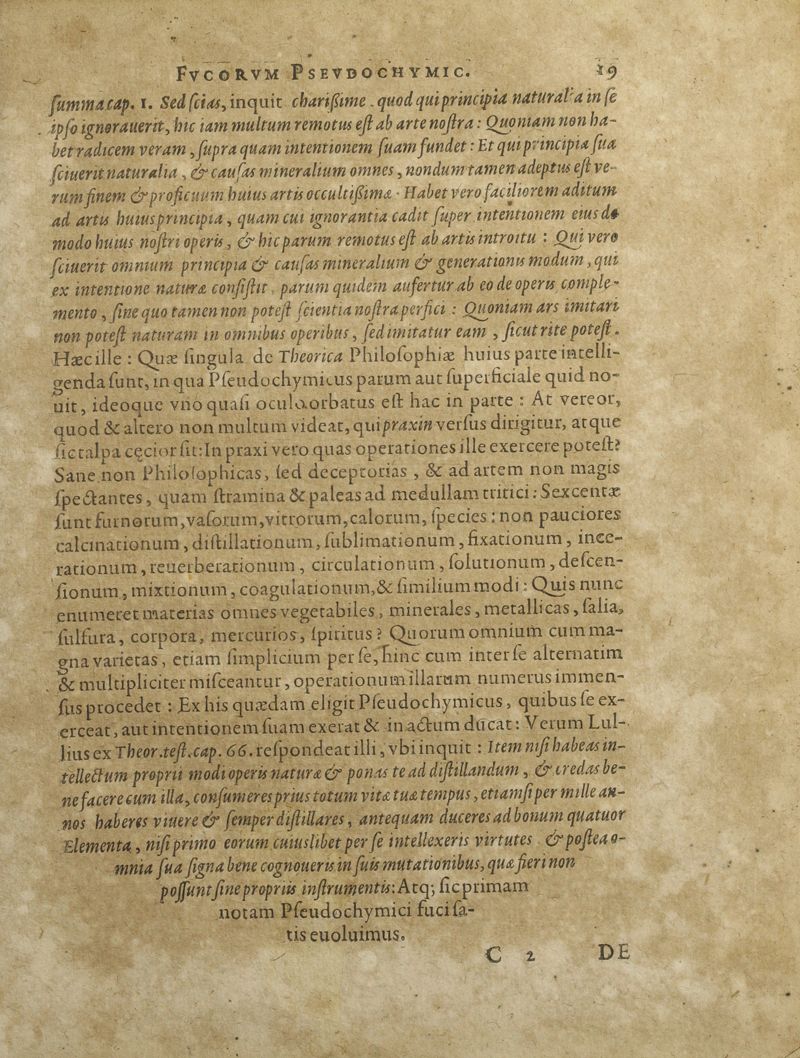 FVCORVM PSEVDOCHYMIC. 19
ſumma cap. 1. Sed ſcias, inquit chariſſime. quod qui principia naturalia in ſe
ipſo ignorauerit, hic iam multum remotus eſt ab arte noſtra: Quoniam non ha-
bet radicem veram, ſupra quam intentionem ſuam fundet: Et qui principia ſua
ſciuerit naturalia, & cauſas mineralium omnes, nondum tamen adeptus eſt ve-
rum finem & proficuum huius artis occultiſſimæ. Habet vero faciliorem aditum
ad artis huius principia, quam cui ignorantia cadit ſuper intentionem eius de
modo huius noſtri operis, & hic parum remotus eſt ab artis introitu: Qui vero
ſciuerit omnium principia & cauſas mineralium & generationis modum, qui
ex intentione naturæ conſiſtit, parum quidem aufertur ab eo de operis comple-
mento, ſine quo tamen non poteſt ſcientia noſtra perfici: Quoniam ars imitari
non poteſt naturam in omnibus operibus, ſed imitatur eam, ſicut rite poteſt.
Hæc ille: Quæ ſingula de Theorica Philoſophiæ huius parte intelli-
genda ſunt, in qua Pſeudochymicus parum aut ſuperficiale quid no-
uit, ideoque vno quaſi oculo orbatus eſt hac in parte: At vereor,
quod & altero non multum videat, qui praxin verſus dirigitur, atque
ſic talpa cęcior ſit: In praxi vero quas operationes ille exercere poteſt?
Sane non Philoſophicas, ſed deceptorias, & ad artem non magis
ſpectantes, quam ſtramina & paleas ad medullam tritici: Sexcentæ
ſunt furnorum, vaſorum, vitrorum, calorum, ſpecies: non pauciores
calcinationum, diſtillationum, ſublimationum, fixationum, ince-
rationum, reuerberationum, circulationum, ſolutionum, deſcen-
ſionum, mixtionum, coagulationum, & ſimilium modi: Quis nunc
enumeret materias omnes vegetabiles, minerales, metallicas, ſalia,
ſulfura, corpora, mercurios, ſpiritus? Quorum omnium cum ma-
gna varietas, etiam ſimplicium per ſe, hinc cum inter ſe alternatim
& multipliciter miſceantur, operationum illarum numerus immen-
ſus procedet: Ex his quædam eligit Pſeudochymicus, quibus ſe ex-
erceat, aut intentionem ſuam exerat & in actum ducat: Verum Lul-
lius ex Theor. teſt. cap. 66. reſpondeat illi, vbi inquit: Item niſi habeas in-
tellectum proprii modi operis naturæ & ponas te ad diſtillandum, & credas be-
ne facere cum illa, conſumeres prius totum vitæ tuæ tempus, etiamſi per mille an-
nos haberes viuere & ſemper diſtillares, antequam duceres ad bonum quatuor
Elementa, niſi primo eorum cuiuslibet per ſe intellexeris virtutes & poſtea o-
mnia ſua ſigna bene cognoueris in ſuis mutationibus, quæ fieri non
poſſunt ſine propriis inſtrumentis: Atq; ſic primam
notam Pſeudochymici fuci ſa-
tis euoluimus.
C 2 DE